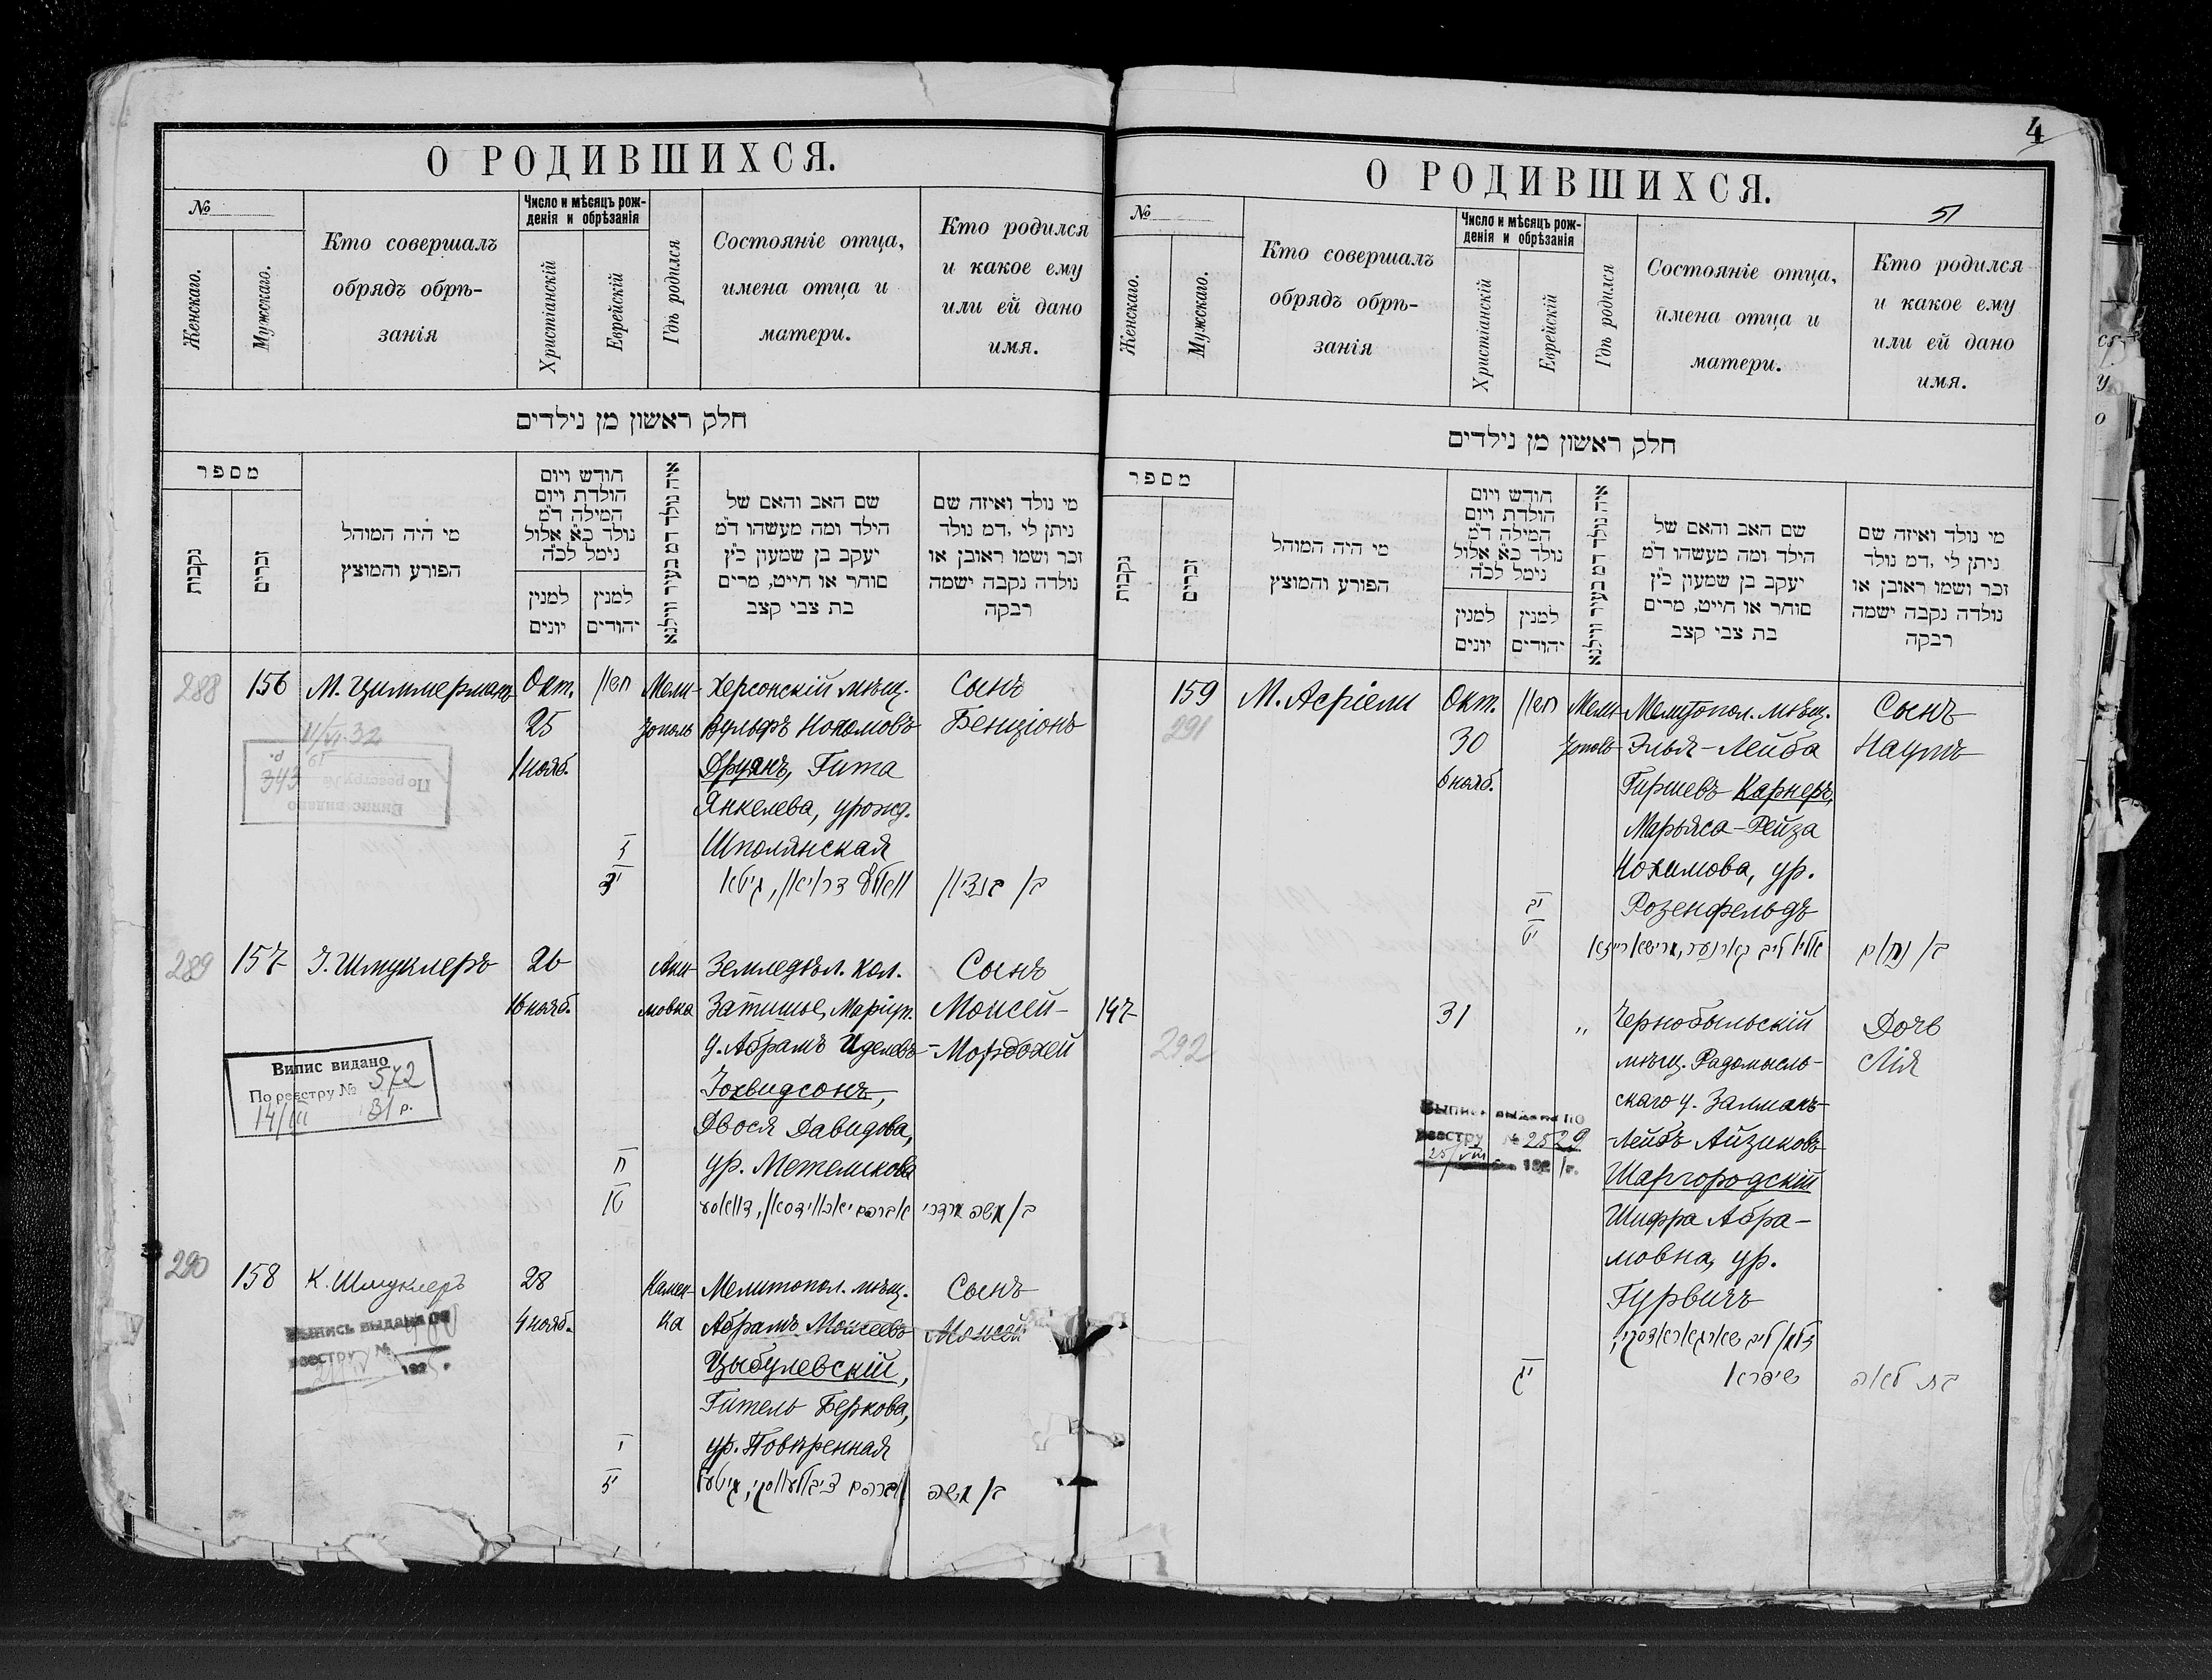 О РОДИВШИХСЯ.
№
Женскаго.
Мужскаго.
Кто совершалъ
обрядъ обрѣ-
занія
Число и мѣсяцъ рож-
денія и обрѣзанія
Христіанскій
Еврейскій
Гдѣ родился
Состояніе отца,
имена отца и
матери.
Кто родился
и какое ему
или ей дано
имя.
חלק ראשון מן נילדים
מספר
נקבות
זכרים
מי היה המוהל
הפורע והמוצץ
חודש ויום
הולדת ויום
המילה ד"מ
נולד כ"א אלול
נימל לכ"ה
למנין
יונים
למנין
יהודים
איה נולד דמ בעיר ווילנא
שם האב והאם של
הילד ומה מעשהו ד"מ
יעקב בן שמעון כ"ץ
סוחר או חייט, מרים
בת צבי קצב
מי נולד ואיזה שם
ניתן לי, דמ נולד
זכר ושמו ראובן או
נולדה נקבה ישמה
רבקה
288
156
М. Циммерманъ
Окт.
25
1 нояб.
חשון
Мели-
тополь
Херсонскій мѣщ.
Вульфъ Нохомовъ
Друянъ, Гита
Янкелева, урожд.
Шполянская
Сынъ
Бенціонъ
וואלף דרויאן, גיטא
בן בנציון
11/VI.32
Випис видано
По реєстру №
343
19 р.
289
157
З. Шмуклеръ
26
16 нояб.
Аки-
мовка
Земледѣл. кол.
Затишье, Маріуп.
у. Абрамъ Иделевъ
Іохвидсонъ,
Двося Давидова,
ур. Метеликова
Сынъ
Моисей-
-Мордохей
ח
אברהם יאכווידסאן, דוואסע
בן משה מרדכי
Випис видано
По реєстру № 572
14/III 31 р.
290
158
К. Шмуклеръ
28
4 нояб.
Камен-
ка
Мелитопол. мѣщ.
Абрамъ Моисеевъ
Цыбулевскій,
Гитель Беркова,
ур. Повѣренная
Сынъ
Моисей
י
אברהם ציבולעווסקי, גיטעל
בן משה
Выпись выдана по
реестру №
192 г.
4
О РОДИВШИХСЯ.
51
№
Женскаго.
Мужскаго.
Кто совершалъ
обрядъ обрѣ-
занія
Число и мѣсяцъ рож-
денія и обрѣзанія
Христіанскій
Еврейскій
Гдѣ родился
Состояніе отца,
имена отца и
матери.
Кто родился
и какое ему
или ей дано
имя.
חלק ראשון מן נילדים
מספר
נקבות
זכרים
מי היה המוהל
הפורע והמוצץ
חודש ויום
הולדת ויום
המילה ד"מ
נולד כ"א אלול
נימל לכ"ה
למנין
יונים
למנין
יהודים
איה נולד דמ בעיר ווילנא
שם האב והאם של
הילד ומה מעשהו ד"מ
יעקב בן שמעון כ"ץ
סוחר או חייט, מרים
בת צבי קצב
מי נולד ואיזה שם
ניתן לי, דמ נולד
זכר ושמו ראובן או
נולדה נקבה ישמה
רבקה
159
291
М. Асріели
Окт.
30
6 нояб.
חשון
Мели-
тополь
Мелитопол. мѣщ.
Элья-Лейба
Гиршевъ Карнеръ,
Марьяса-Рейза
Нохимова, ур.
Розенфельдъ
Сынъ
Наумъ
יב
יט
אליי לייב קארנער, מרישא רייזא
בן נחום
147
292
31
"
Чернобыльскій
мѣщ. Радомысль-
скаго у. Залманъ-
-Лейбъ Айзиковъ
Шаргородскій
Шифра Абра-
мовна, ур.
Гурвичъ
Дочь
Лія
זלמן לייב שארגאראדסקי,
שיפרא
יג
בת לאה
Выпись выдана по
реестру № 2529
25/VIII 192 г.